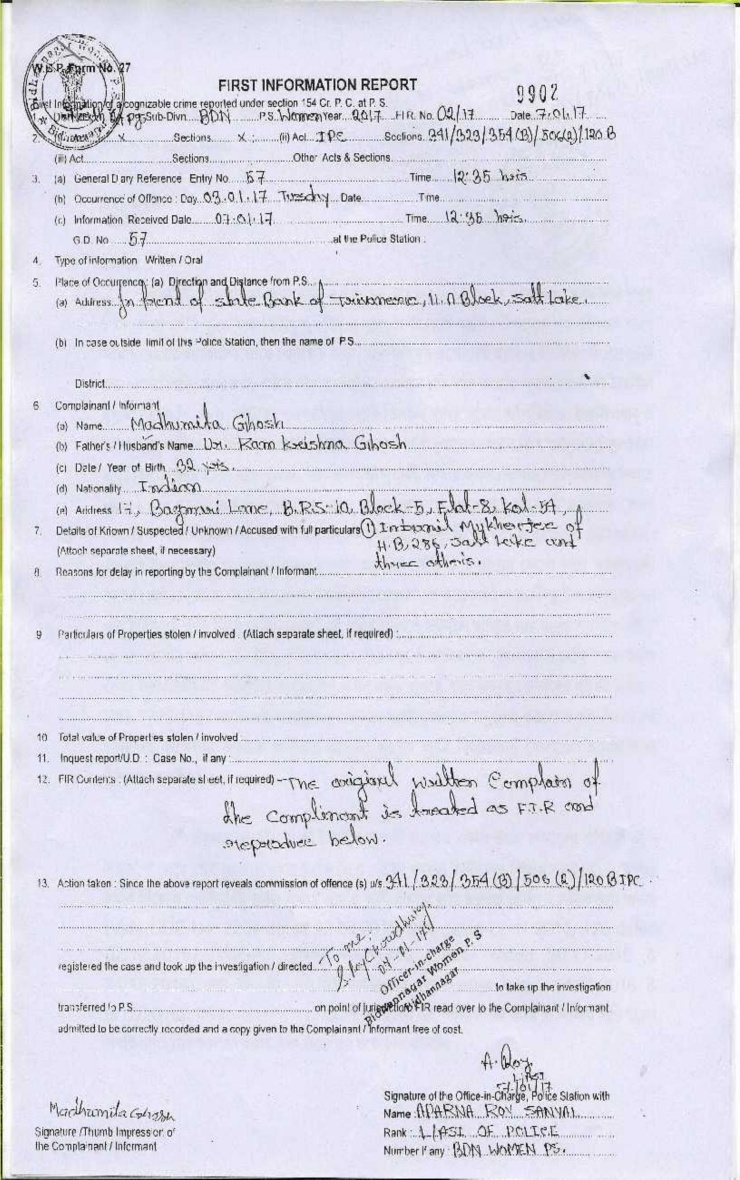 W.B.P. Form No. 27
FIRST INFORMATION REPORT
9902
First Information of a cognizable crime reported under section 154 Cr. P. C. at P. S.
Sub-Divn. BDN P.S. Women Year 2017 FIR. No. 02/17 Date 7.01.17
2. X Sections X (ii) Act IPC Sections 341/323/354(B)/506(2)/120B
(iii) Act Sections Other Acts & Sections
3. (a) General Diary Reference Entry No 57 Time 12:35 hrs
(b) Occurrence of Offence : Day 03.01.17 Tuesday Date Time
(c) Information Received Date 07.01.17 Time 12:35 hrs.
G.D. No 57 at the Police Station :
4. Type of information Written / Oral
5. Place of Occurrence: (a) Direction and Distance from P.S.
(a) Address In front of state Bank of Block, Salt Lake.
(b) In case outside limit of this Police Station, then the name of P.S.
District
6 Complainant / Informant
(a) Name Madhumita Ghosh
(b) Father's / Husband's Name Ram Krishna Ghosh
(c) Date / Year of Birth 32 yrs.
(d) Nationality Indian
(e) Address 17, Bagmari Lane, B.R.S-10, Block-5, Flat-8, Kol-54,
7. Details of Known / Suspected / Unknown / Accused with full particulars (1) Indranil Mukherjee of
(Attach separate sheet, if necessary) H.B 286, Salt Lake and
three others.
8. Reasons for delay in reporting by the Complainant / Informant
9 Particulars of Properties stolen / involved : (Attach separate sheet, if required) :
10. Total value of Properties stolen / involved :
11. Inquest report/U.D. : Case No., if any :
12. FIR Contents : (Attach separate sheet, if required) - The original written Complain of
the Complinant is treated as F.I.R and
reproduce below.
13. Action taken : Since the above report reveals commission of offence (s) u/s 341/323/354(B)/506(2)/120B IPC.
To me.
Officer-in-charge
Bidhannagar Women P. S
Bidhannagar
registered the case and took up the investigation / directed to take up the investigation
transferred to P.S. on point of jurisdiction FIR read over to the Complainant / Informant
admitted to be correctly recorded and a copy given to the Complainant / Informant free of cost.
A. Roy
LASI
7/01/17
Madhumita Ghosh
Signature /Thumb Impression of
the Complainant / Informant
Signature of the Office-in-Charge, Police Station with
Name APARNA ROY SANYAL
Rank : L/ASI OF POLICE
Number if any : BDN WOMEN PS.